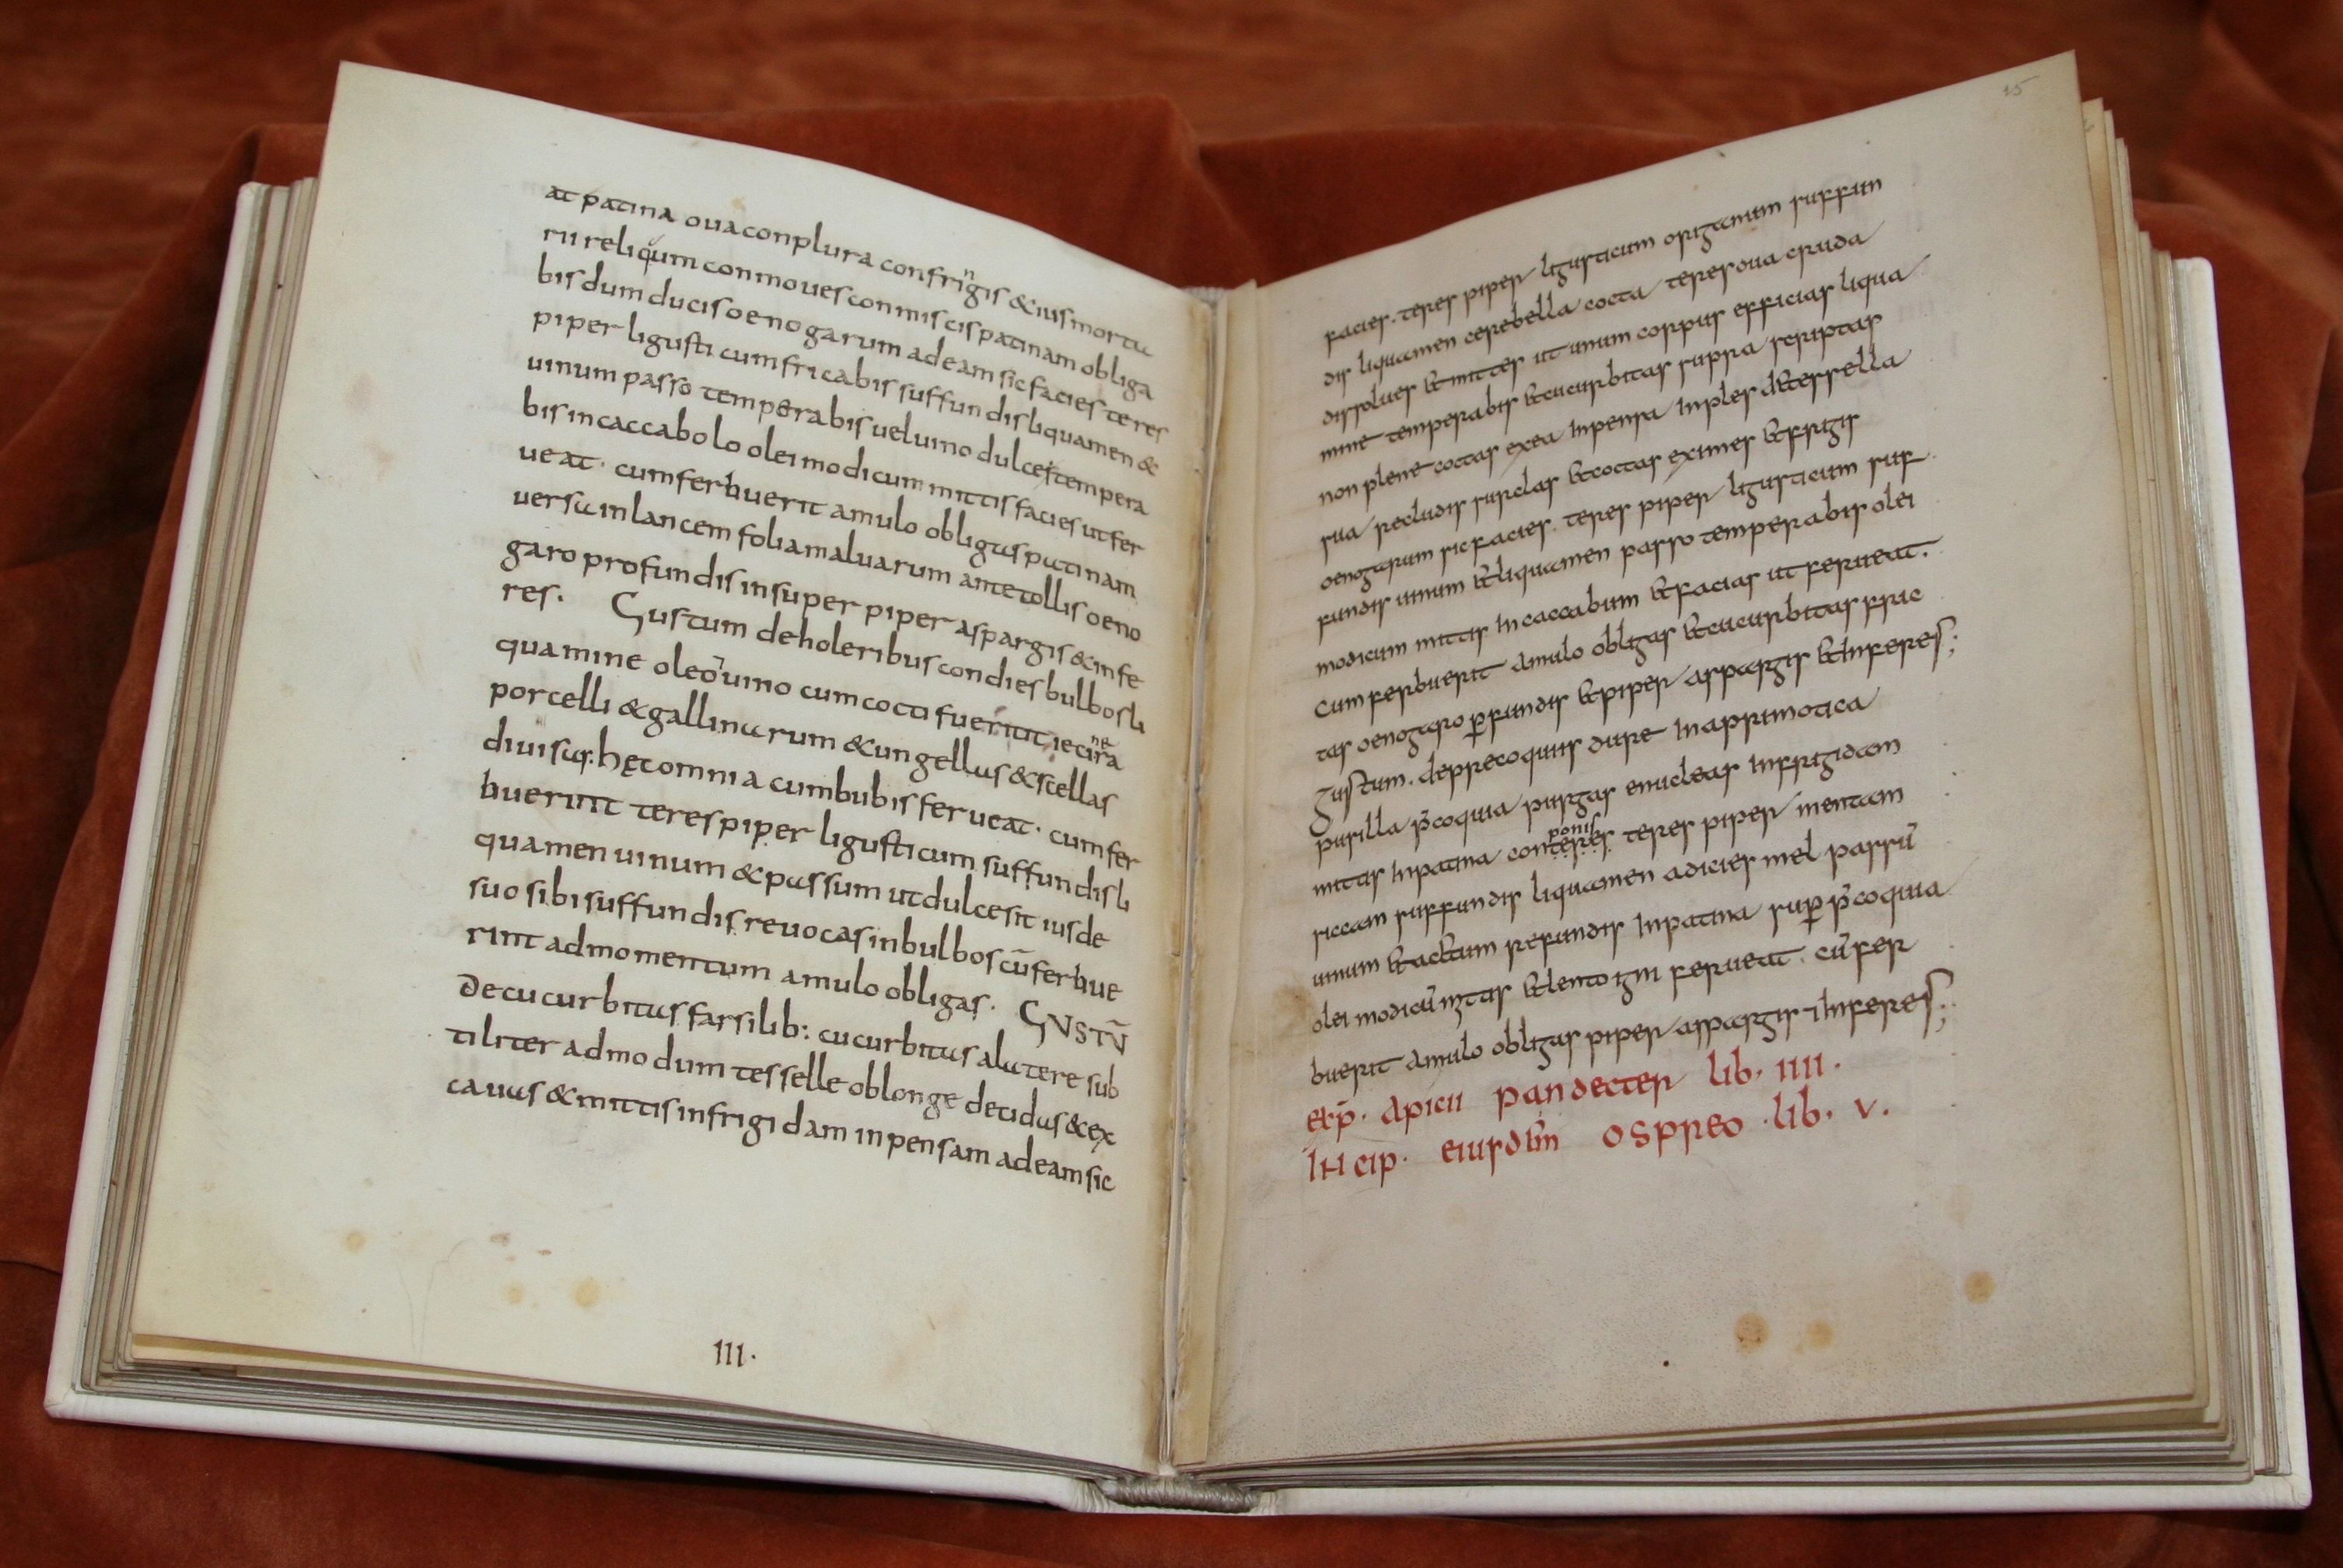 at patina oua conplura confringis & ius mortu
rii reliqum conmoues conmiscis patinam obliga
bis dum ducis oenogarum ad eam sic facies teres
piper ligusticum fricabis suffundis liquamen &
uinum passo temperabis uel uino dulce & tempera
bis in caccabolo olei modicum mittis facies ut fer
ueat · cum ferbuerit amulo obligas patinam
uersa in lancem folia maluarum ante tollis oeno
garo profundis insuper piper aspargis & infe
res. Gustum de holeribus condies bulbos li
quamine oleo uino cum cocti fuerint iecinera
porcelli & gallinarum & ungellas & scellas
diuisas. hęc omnia cum bubis ferueat · cum fer
buerint teres piper ligusticum suffundis li
quamen uinum & passum ut dulce sit ius de
suo sibi suffundis reuocas in bulbos cū ferbue
rint ad momentum amulo obligas. GUSTŪ
De cucurbitas farsilib: cucurbitas a latere sub
tiliter ad modum tesselle oblonge decidas & ex
cauas & mittis in frigidam inpensam ad eam sic
III.
15
facies. teres piper ligusticum origanum suffun
dis liquamen cerebella cocta teres oua cruda
dissolues & mittes ut unum corpus efficias liqua
mine temperabis & cucurbitas supra scriptas
non plene coctas ex ea inpensa inples de tessella
sua recludis surclas & coctas eximes & frigis
oenogarum sic facies. teres piper ligusticum suf
fundis uinum & liquamen passo temperabis olei
modicum mittis in caccabum & facias ut ferueat.
cum ferbuerit amulo obligas & cucurbitas fric
tas oenogaro p̱fundis & piper aspargis & inferes;
Gustum. de precoquiis dure in aprimotica
pusilla p̄coquia purgas enucleas in frigidam
mittis in patina conteres ponis teres piper mentam
siccam suffundis liquamen adicies mel passū
uinum & acetum refundis in patina sup̱ p̄coquia
olei modicū mittis & lento igni ferueat. cū fer
buerit amulo obligas piper aspargis & inferes;
exp̄. apicii pandecter lib. IIII.
INcip. eiusdēm ospreo. lib. V.